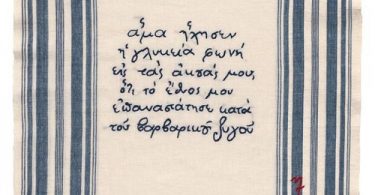 ἅμα ἤχησεν
ἡ γλυκεῖα φωνή
εἰς τὰς ἀκοάς μου,
ὅτι τὸ ἔθνος μου
ἐπαναστάτησε κατὰ
τοῦ βαρβαρικοῦ ζυγοῦ